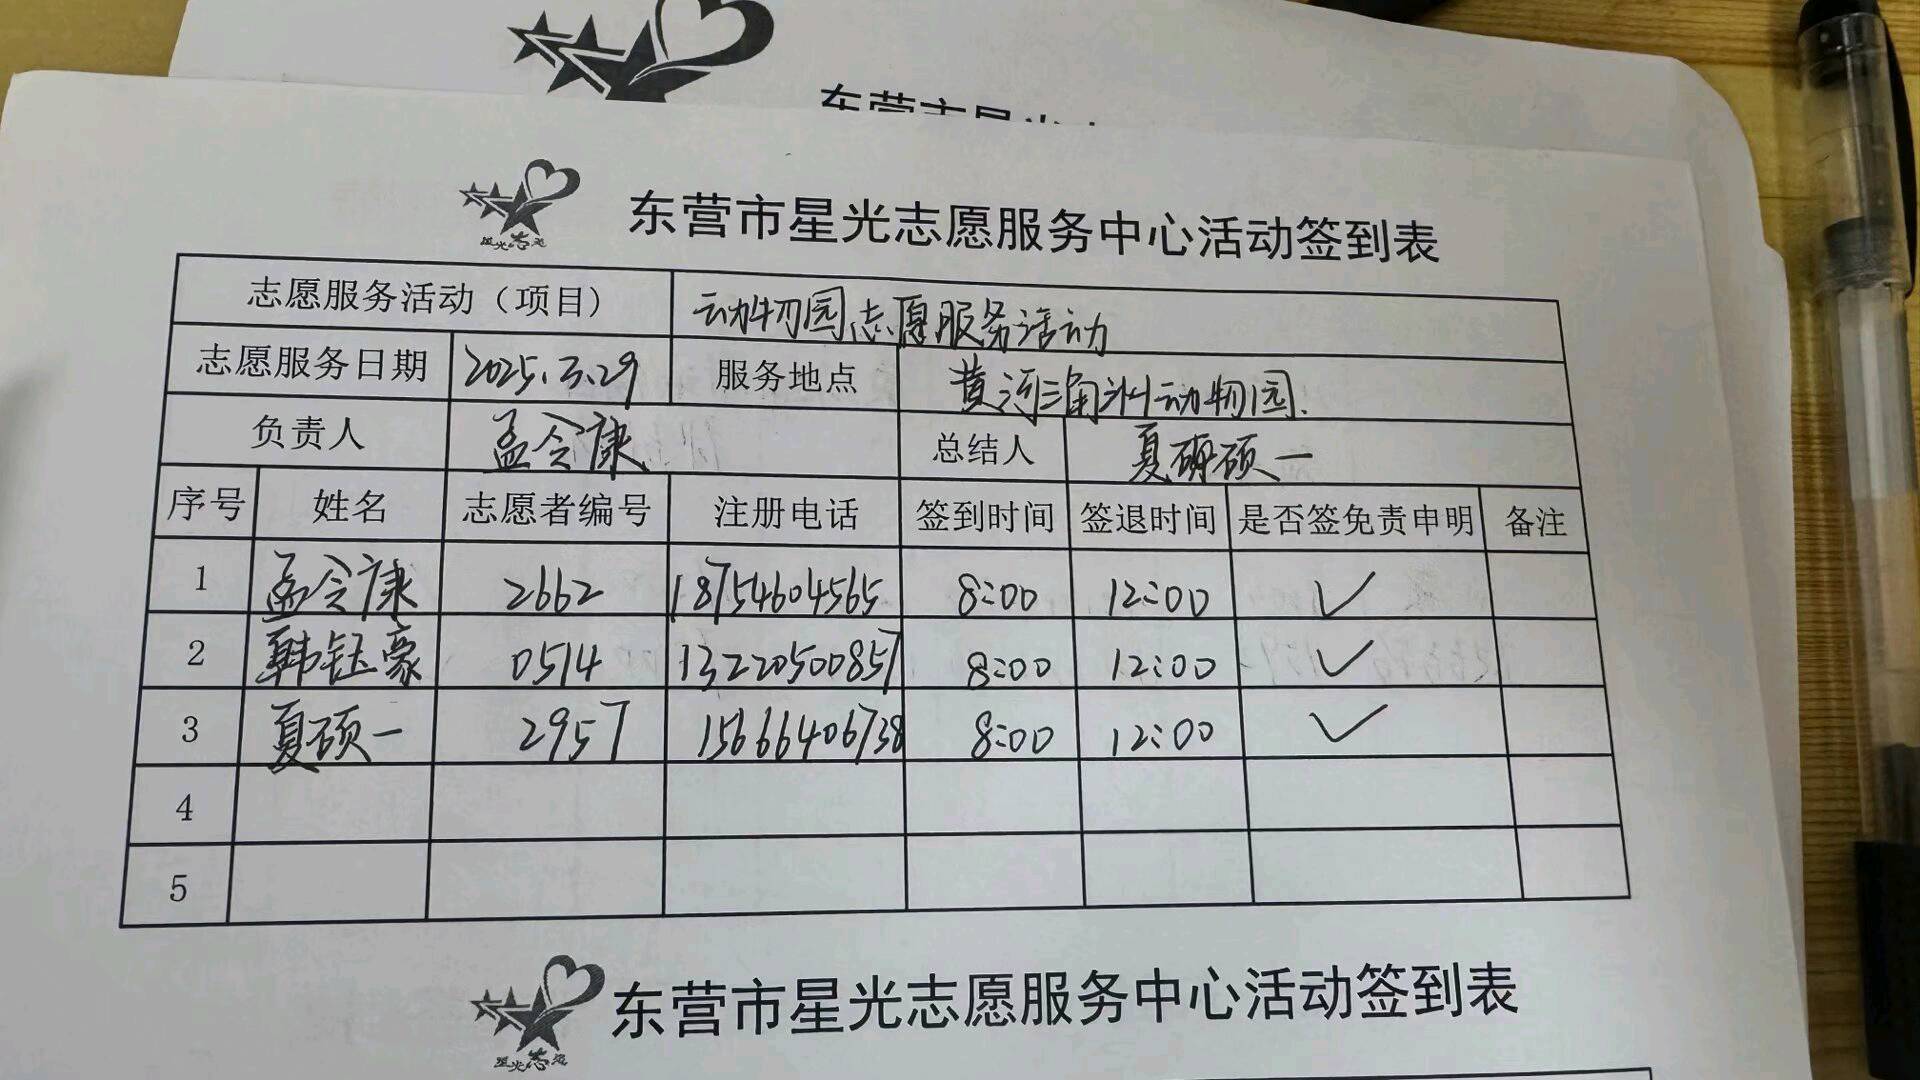 东营市星光志愿服务中心活动签到表
星光志愿
志愿服务活动（项目） 动物园志愿服务活动
志愿服务日期 2025.3.29 服务地点 黄河三角洲动物园.
负责人 孟令康 总结人 夏硕一
序号 姓名 志愿者编号 注册电话 签到时间 签退时间 是否签免责申明 备注
1 孟令康 2662 18754604565 8:00 12:00 ✓
2 韩钰豪 0514 13220500857 8:00 12:00 ✓
3 夏硕一 2957 15666406738 8:00 12:00 ✓
4
5
东营市星光志愿服务中心活动签到表
星光志愿